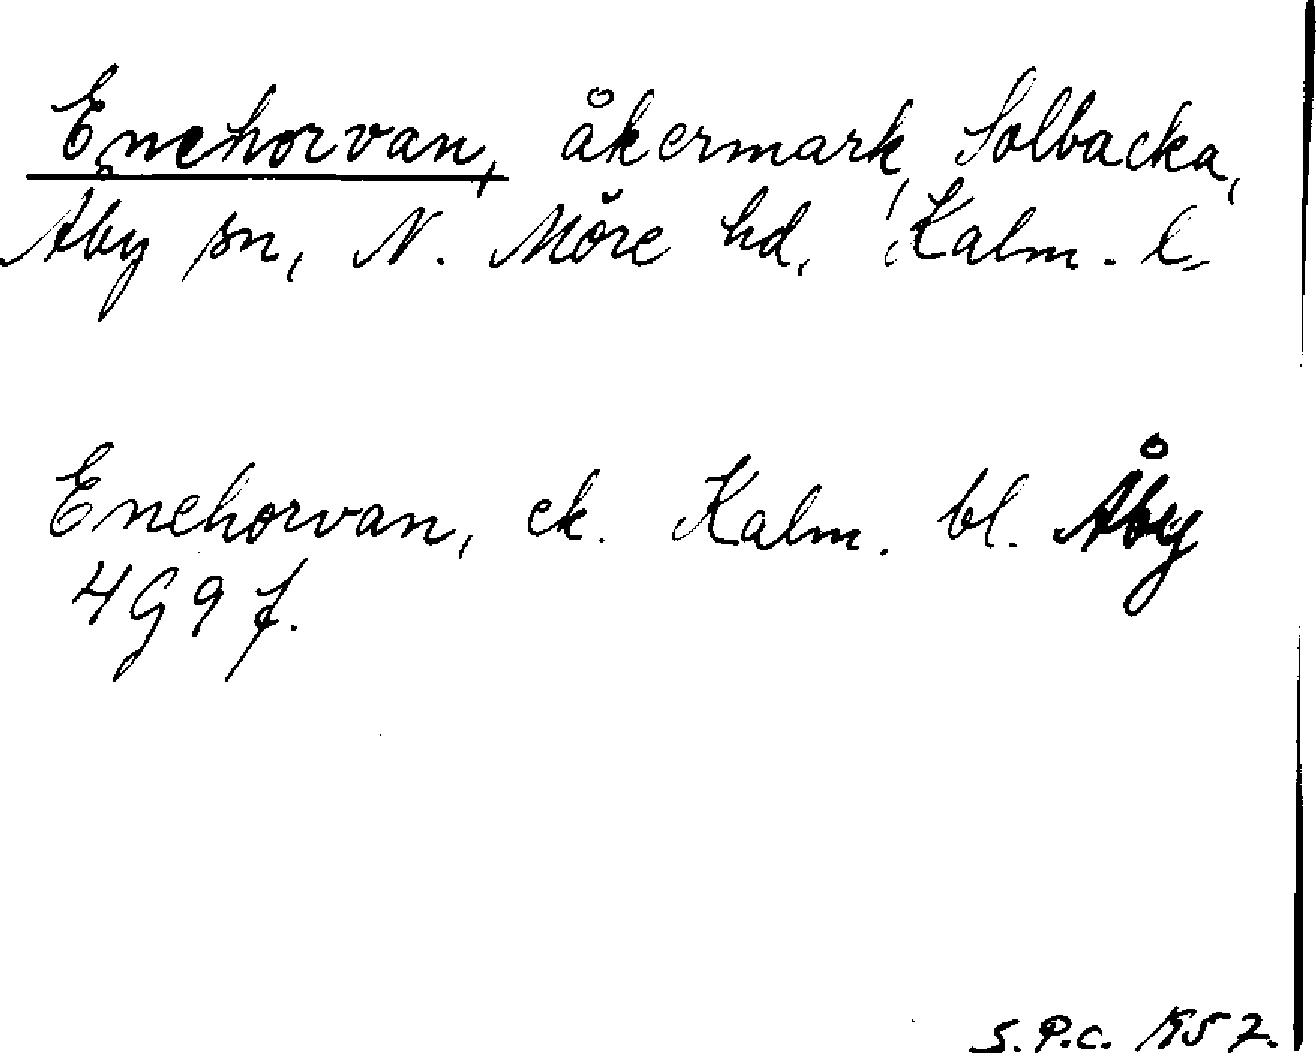 Enehorvan, åkermark, Solbacka,
Åby sn, N. Möre hd, Kalm. l.
Enehorvan, ek. Kalm. bl. Åby
4G9f.
S.P.C. 1957.